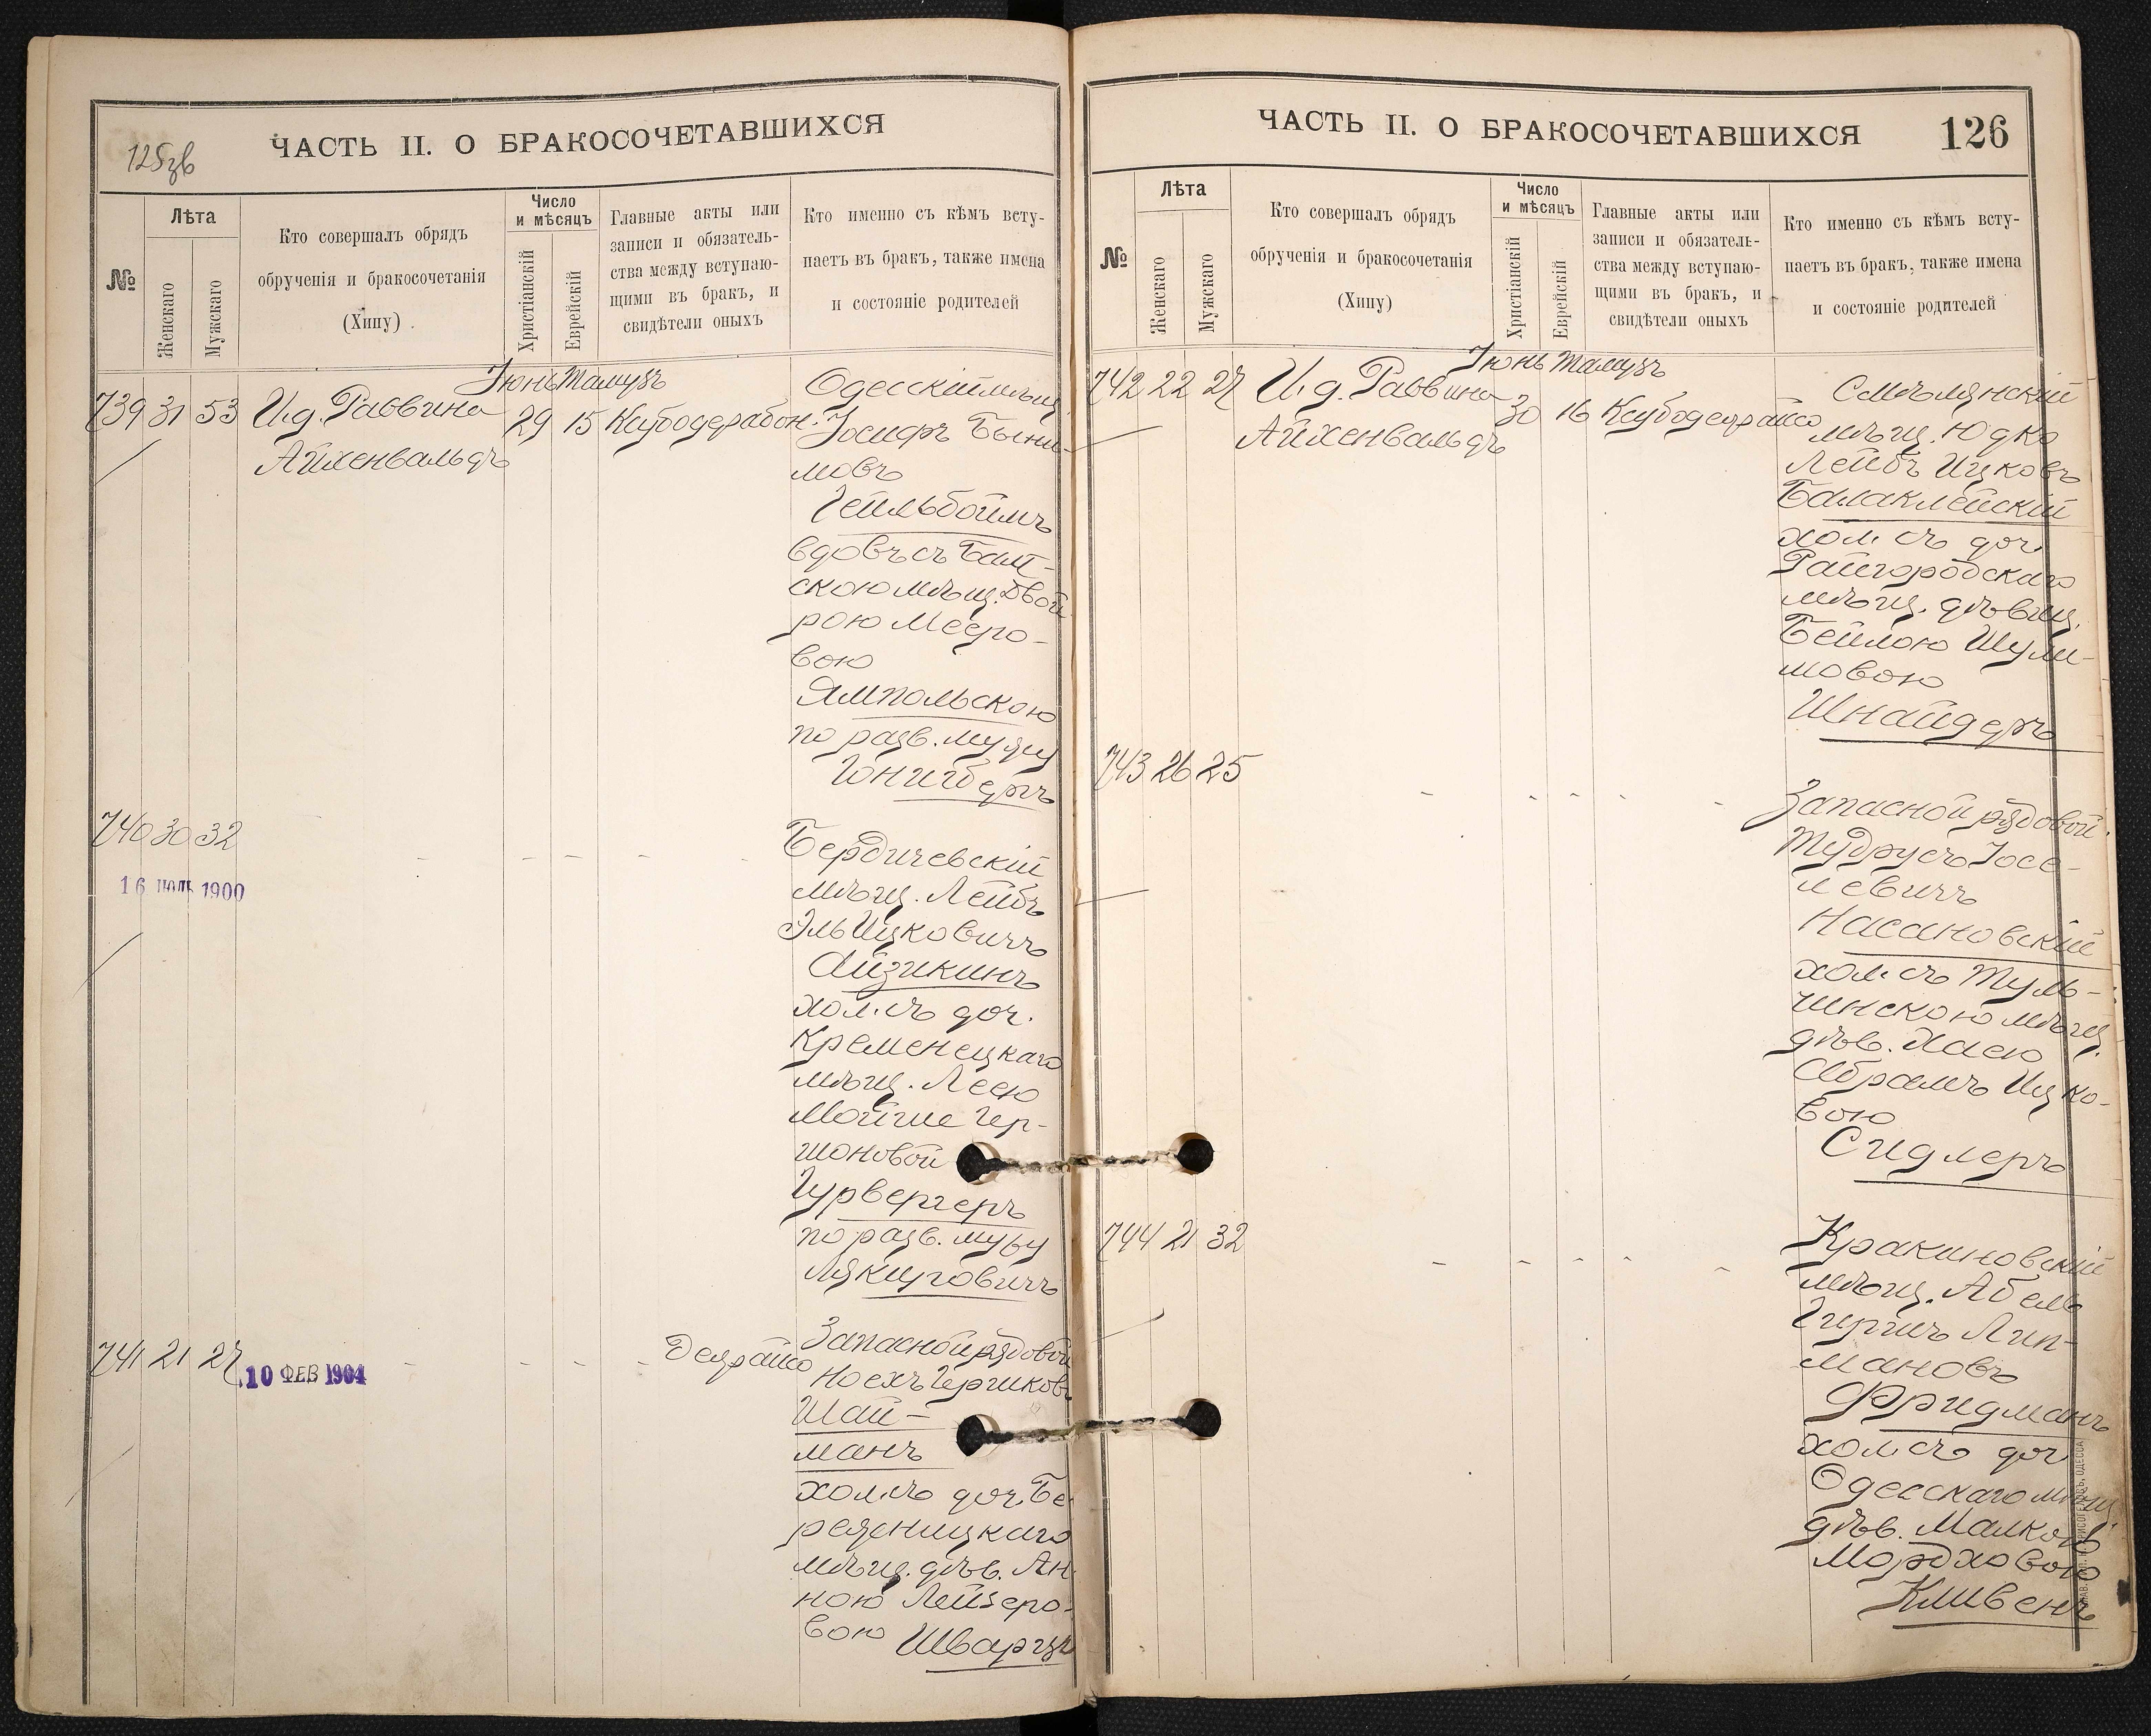 125зв
ЧАСТЬ II. О БРАКОСОЧЕТАВШИХСЯ
№
Лѣта
Женскаго
Мужскаго
Кто совершалъ обрядъ
обрученія и бракосочетанія
(Хипу)
Число
и мѣсяцъ
Христіанскій
Еврейскій
Главные акты или
записи и обязатель-
ства между вступаю-
щими въ бракъ, и
свидѣтели оныхъ
Кто именно съ кѣмъ всту-
паетъ въ бракъ, также имена
и состояніе родителей
Іюнь Тамузъ
739 31 53 И.д. Раввина
Айхенвальдъ
29 15
Одесскій мѣщ.
Іосифъ Бени-
мовъ
Гейльбоймъ
вдовъ съ
скою мѣщ. Двой
рою Мееро-
вою
Ямпольскою
по разв. мужу
Юнигбергъ
740 30 32
16 ІЮЛЬ 1900
- - - - -
Бердичевскій
мѣщ. Лейбъ
Эль Ицковичъ
Айзикинъ
хол. съ доч.
Кременецкаго
мѣщ. Леею
Мойше Гер-
шоновой
Гурвергеръ
по разв. мужу
741 21 27
10 ФЕВ 1904
- - - -
Запасной рядовой
Ноехъ Гершковъ
Шай-
манъ
хол. съ доч. Бе
резеницкаго
мѣщ. дѣв. Ан
ною Лейзеро-
вою Шварцъ
ЧАСТЬ II. О БРАКОСОЧЕТАВШИХСЯ
126
№
Лѣта
Женскаго
Мужскаго
Кто совершалъ обрядъ
обрученія и бракосочетанія
(Хипу)
Число
и мѣсяцъ
Христіанскій
Еврейскій
Главные акты или
записи и обязатель-
ства между вступаю-
щими въ бракъ, и
свидѣтели оныхъ
Кто именно съ кѣмъ всту-
паетъ въ бракъ, также имена
и состояніе родителей
Іюнь Тамузъ
742 22 27 И.д. Раввина
Айхенвальдъ
30 16
Смѣлянскій
мѣщ. Юдко
Лейбъ Ицковъ
Балаклейскій
хол. съ доч.
Райгородскаго
мѣщ. дѣвиц.
Бейлою Шули-
мовою
Шнайдеръ
743 26 25
- - - - -
Запасной рядовой
Тудрусъ Іосе-
левичъ
Насановскій
хол. съ Туль-
чинскою мѣщ.
дѣв. Хаею
Абрамъ Ицко-
вою
Сидлеръ
744 21 32
- - - - -
Кракиновскій
мѣщ. Абель
Гиршъ Лип-
мановъ
Фридманъ
хол. съ доч
Одесскаго мѣщ.
дѣв. Малкою
Мордховою
Кливенъ